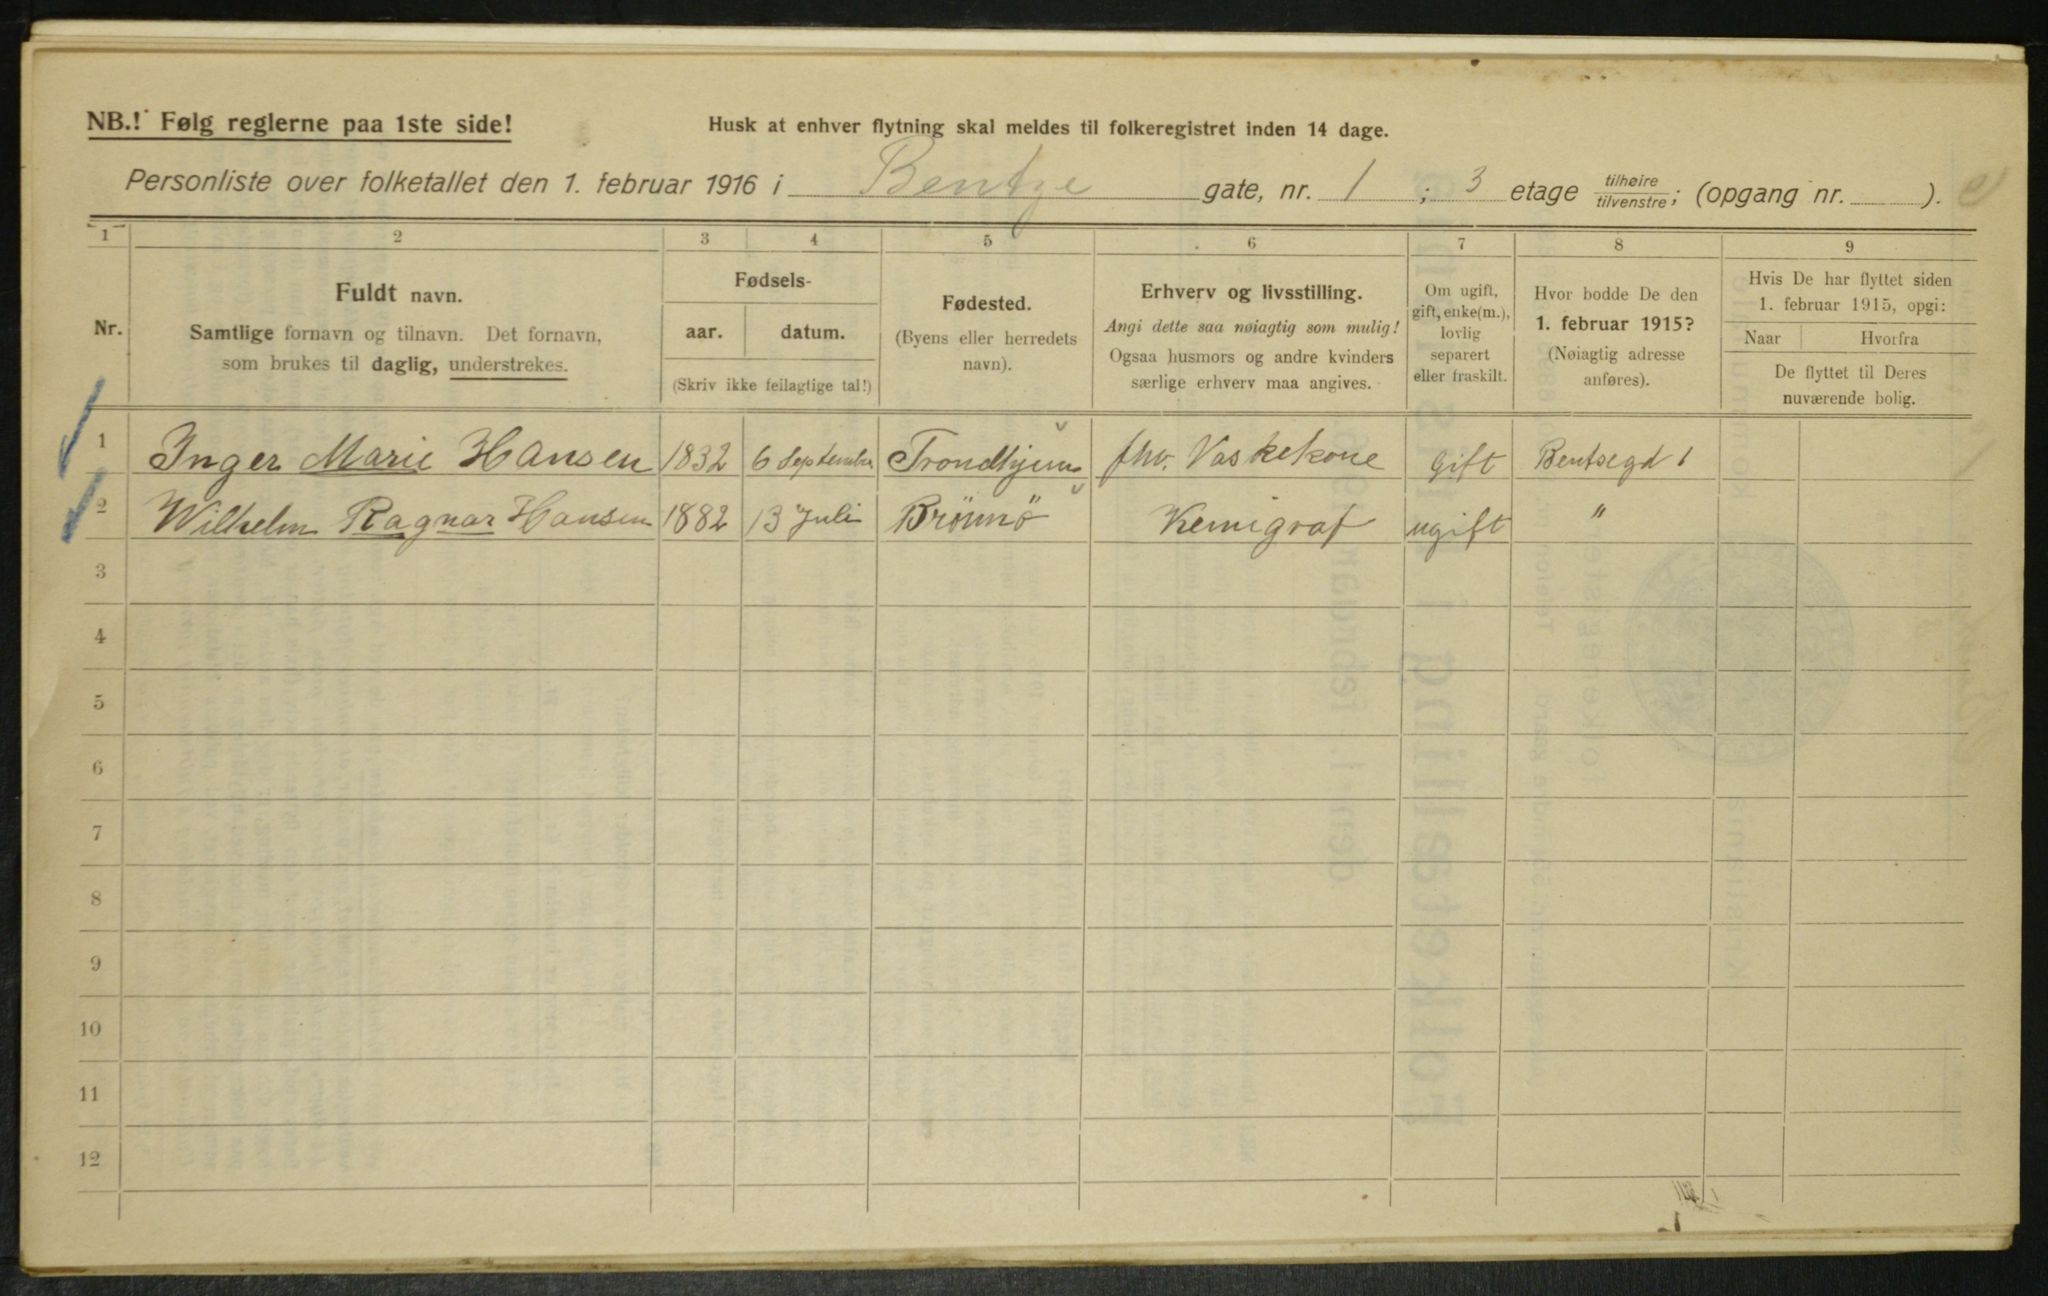 NB.! Følg reglerne paa 1ste side!
Husk at enhver flytning skal meldes til folkeregistret inden 14 dage.
Personliste over folketallet den 1. februar 1916 i Bentze gate, nr. 1 ; 3 etage tilhøire/tilvenstre; (opgang nr. ).
1 2 3 4 5 6 7 8 9
Nr.
Fuldt navn.
Samtlige fornavn og tilnavn. Det fornavn,
som brukes til daglig, understrekes.
Fødsels-
aar. datum.
(Skriv ikke feilagtige tal!)
Fødested.
(Byens eller herredets
navn).
Erhverv og livsstilling.
Angi dette saa nøiagtig som mulig!
Ogsaa husmors og andre kvinders
særlige erhverv maa angives.
Om ugift,
gift, enke(m.),
lovlig
separert
eller fraskilt.
Hvor bodde De den
1. februar 1915?
(Nøiagtig adresse
anføres).
Hvis De har flyttet siden
1. februar 1915, opgi:
Naar Hvorfra
De flyttet til Deres
nuværende bolig.
1 Inger Marie Hansen 1832 6 September Trondhjem fhv. Vaskekone gift Bentsegd 1
2 Wilhelm Ragnar Hansen 1882 13 Juli Brönnö Kemigraf ugift "
3
4
5
6
7
8
9
10
11
12